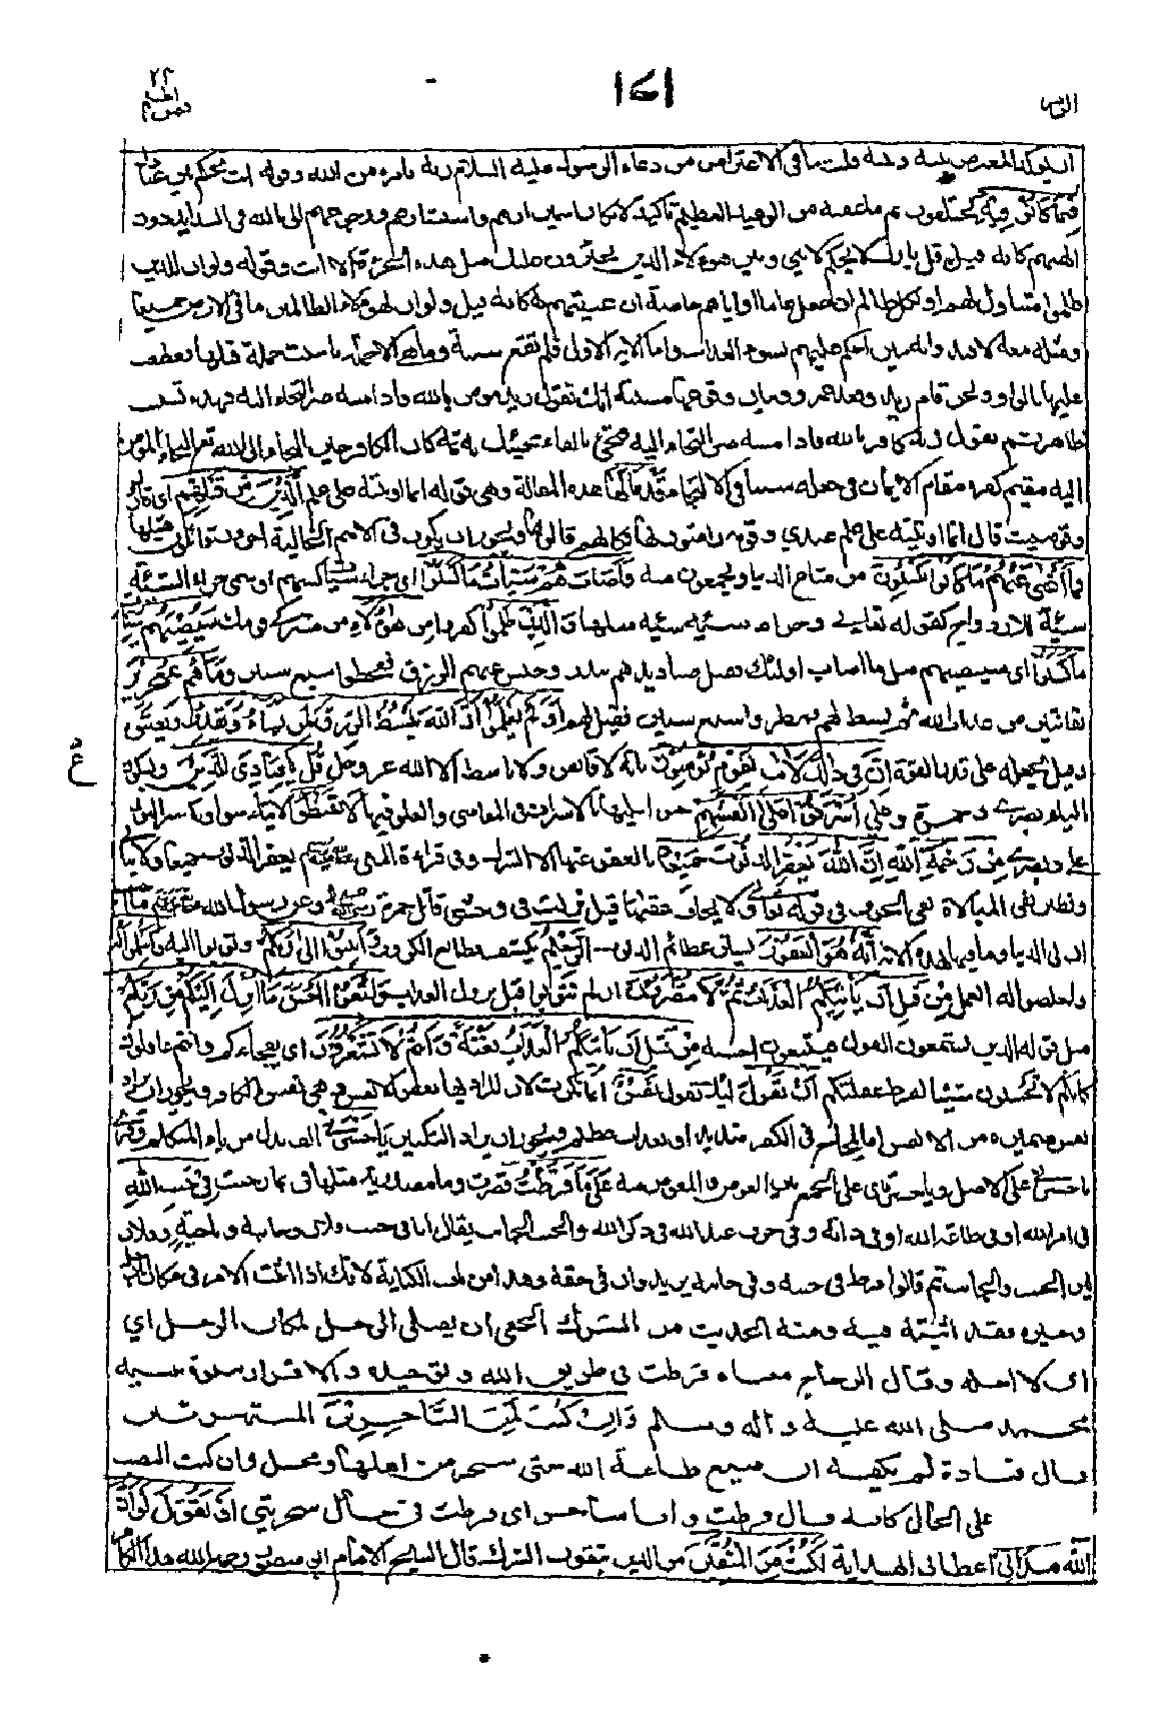 ١٤١
ان يؤكد المعترض بينه وبينه قلت ما في الاعتراض من دعاء الرسول عليه السلام ربه بامره من الله وقوله انت تحكم بين عبادك
فيما كانوا فيه يختلفون ثم ما عقبه من الوعيد العظيم تأكيد لانكار اشمئزازهم واستبشارهم ورجوعهم الى الله في الشدائد دون
الهتهم كانه قيل قل يا رب لا يحكم بيني وبين هؤلاء الذين يجترؤن عليك مثل هذه الجرءة الا انت وقوله ولو ان للذين
ظلموا متناول لهم او لكل ظالم ان جعل عاما او اياهم خاصة ان عنيتهم به كانه قيل ولو ان لهؤلاء الظالمين ما في الارض جميعا
ومثله معه لافتدوا به حين احكم عليهم بسوء العذاب واما الآية الاولى فلم تقع مسببة وما هي الا جملة ناسبت جملة قبلها فعطفت
عليها بالواو ونحو قام زيد وقعد عمرو وبيان وقوعها مسببة انك تقول زيد مؤمن بالله فاذا مسه ضر التجأ اليه فهذا تسبيب
ظاهر ثم تقول زيد كافر بالله فاذا مسه ضر التجأ اليه فتجئ بالفاء مجيئك به ثمة كان الكافر حين التجأ الى الله التجاء المؤمن
اليه مقيم كفره مقام الايمان في جعله سببا في الالتجاء قد قالها هذه المقالة وهي قوله انما اوتيته على علم الذين من قبلهم اى قارون
وقومه حيث قال انما اوتيته على علم عندي وقومه راضون بها فكانهم قالوها ويجوز ان يكون في الامم الخالية اخرون قائلون مثلها
فما اغنى عنهم ما كانوا يكسبون من متاع الدنيا ويجمعون منه فاصابهم سيئات ما كسبوا اى جزاء سيئات كسبهم او سمى جزاء السيئة
سيئة للازدواج كقوله تعالى وجزاء سيئة سيئة مثلها والذين ظلموا كفروا من هؤلاء من مشركي قومك سيصيبهم سيئات
ما كسبوا اى سيصيبهم مثل ما اصاب اولئك فقتل صناديدهم ببدر وحبس عنهم الرزق فقحطوا سبع سنين وما هم بمعجزين
بفائتين من عذاب الله ثم بسط لهم فمطروا سبع سنين فقيل لهم اولم يعلموا ان الله يبسط الرزق لمن يشاء ويقدر ويضيق
وقيل يجعله على قدر القوت ان في ذلك لآيات لقوم يؤمنون بانه لا قابض ولا باسط الا الله عز وجل قل يا عبادي الذين وبسكون
الياء بصري وحمزة وعلي اسرفوا على انفسهم جنوا عليها بالاسراف في المعاصي والغلو فيها لا تقنطوا لا تيأسوا وبكسر النون
على وبصري من رحمة الله ان الله يغفر الذنوب جميعا بالعفو عنها الا الشرك وفي قراءة النبي عليه السلام يغفر الذنوب جميعا ولا يبالي
ونظير نفي المبالاة نفي الخوف في قوله تعالى ولا يخاف عقبيها قيل نزلت في وحشي قاتل حمزة رضي الله عنه وعن رسول الله ما احب
ان لي الدنيا وما فيها بهذه الآية انه هو الغفور بستر عظائم الذنوب الرحيم بكشف فظائع الكروب وانيبوا الى ربكم وتوبوا اليه واسلموا له
واخلصوا له العمل من قبل ان يأتيكم العذاب ثم لا تنصرون ان لم تتوبوا قبل نزول العذاب واتبعوا احسن ما انزل اليكم من ربكم
مثل قوله الذين يستمعون القول فيتبعون احسنه من قبل ان يأتيكم العذاب بغتة وانتم لا تشعرون اى يفجأكم وانتم غافلون
كانكم لا تخشون شيئا لفرط غفلتكم ان تقول لئلا تقول نفس انما نكرت لان المراد بها بعض الانفس وهي نفس الكافر ويجوز ان يراد
نفس متميزة من الانفس اما بلجاج في الكفر شديد او بعذاب عظيم ويجوز ان يراد التكثير يا حسرتى الالف بدل من ياء المتكلم وقرئ
يا حسرتي على الاصل ويا حسرتاى على الجمع بين العوض والمعوض منه على ما فرطت قصرت وما مصدرية مثلها في بما رحبت في جنب الله
في امر الله او في طاعة الله او في ذاته وفي حرف عبد الله في ذكر الله والجنب الجانب يقال انا في جنب فلان وجانبه وناحيته وفلان
لين الجنب والجانب ثم قالوا فرط في جنبه وفي جانبه يريدون في حقه وهذا من باب الكناية لانك اذا اثبت الامر في مكان الرجل
وحيزه فقد اثبته فيه ومنه الحديث من الشرك الخفي ان يصلي الرجل لمكان الرجل اي
اى لاجله وقال الزجاج معناه فرطت في طريق الله وتوحيده والاقرار بنبوة نبيه
محمد صلى الله عليه وآله وسلم وان كنت لمن الساخرين المستهزئين
قال قتادة لم يكفه ان ضيع طاعة الله حتى سخر من اهلها ومحل وان كنت النصب
على الحال كانه قال فرطت وانا ساخر اى فرطت في حال سخريتي او تقول لو ان
الله هداني اعطاني الهداية لكنت من المتقين من الذين يتقون الشرك قال الشيخ الامام ابو منصور رحمه الله هذا الكافر
ع